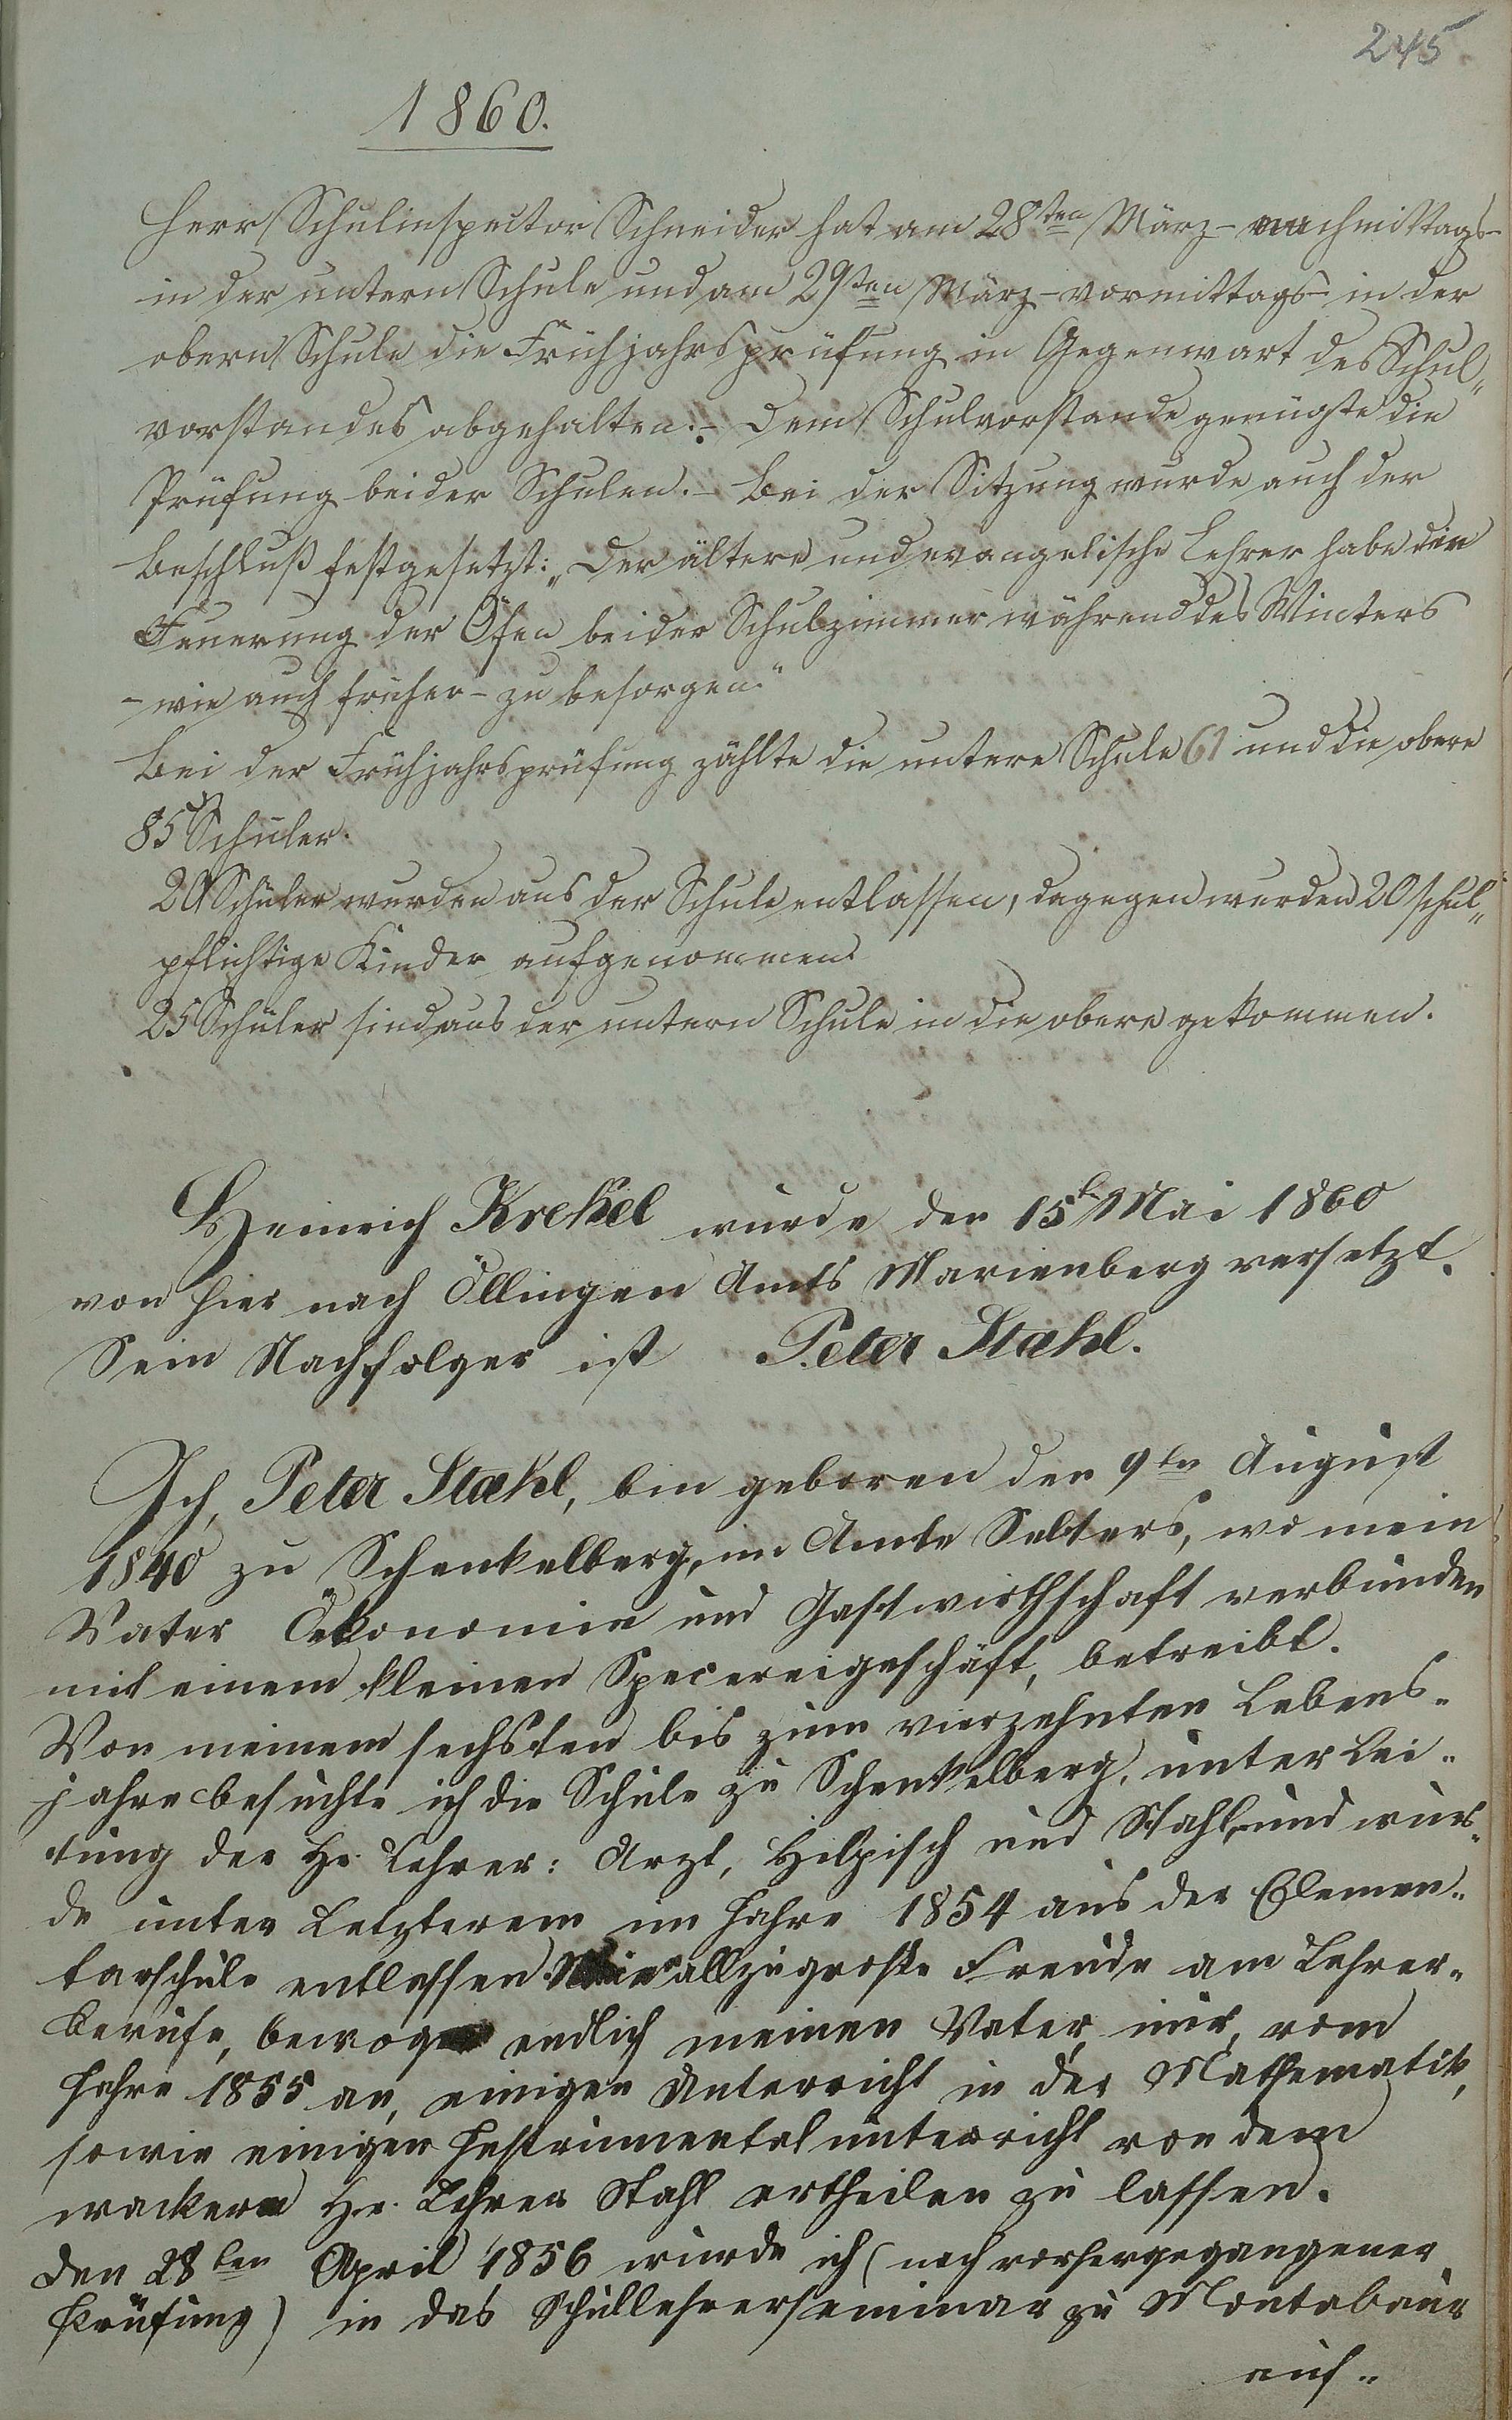 245
1860.
Herr Schulinspector Schneider hat am 28ten März - nachmittags -
in der untern Schule und am 29ten März - vormittags - in der
obern Schule die Frühjahrsprüfung in Gegenwart des Schul„
vorstandes abgehalten. - Dem Schulvorstande genügte die
Prüfung beider Schulen. - Bei der Sitzung wurde auch der
Beschluß festgesetzt: „Der ältere und evangelische Lehrer habe die
Feuerung der Öfen beider Schulzimmer während des Winters
- wie auch früher - zu besorgen."
Bei der Frühjahrsprüfung zählte die untere Schule 61 und die obere
85 Schüler.
20 Schüler wurden aus der Schule entlassen, dagegen wurden 20 schul„
pflichtige Kinder aufgenommen.
25 Schüler sind aus der untern Schule in die obere gekommen.
Heinrich Krekel wurde den 15t Mai 1860
von hier nach Öllingen Amts Marienberg versetzt.
Sein Nachfolger ist Peter Stahl.
Ich, Peter Stahl, bin geboren den 9ten August
1840 zu Schenkelberg, im Amte Selters, wo mein
Vater Ökonomie und Gastwirthschaft verbunden
mit einem kleinen Specereigeschäft, betreibt.
Von meinem sechsten bis zum vierzehnten Lebens„
jahre besuchte ich die Schule zu Schenkelberg, unter Lei„
tung der Hr. Lehrer: Arzt, Hilpisch und Stahl, und wur„
de unter Letzterem im Jahre 1854 aus der Elemen„
tarschule entlassen. Meine allzugroße Freude am Lehrer„
berufe, bewog endlich meinen Vater, mir, vom
Jahre 1855 an, einigen Unterricht in der Mathematik,
sowie einigen Instrumentalunterricht von dem
wackern Hr. Lehrer Stahl ertheilen zu lassen.
Den 28ten April 1856 wurde ich (nach vorhergegangener
Prüfung) in das Schullehrerseminar zu Montabaur
auf„